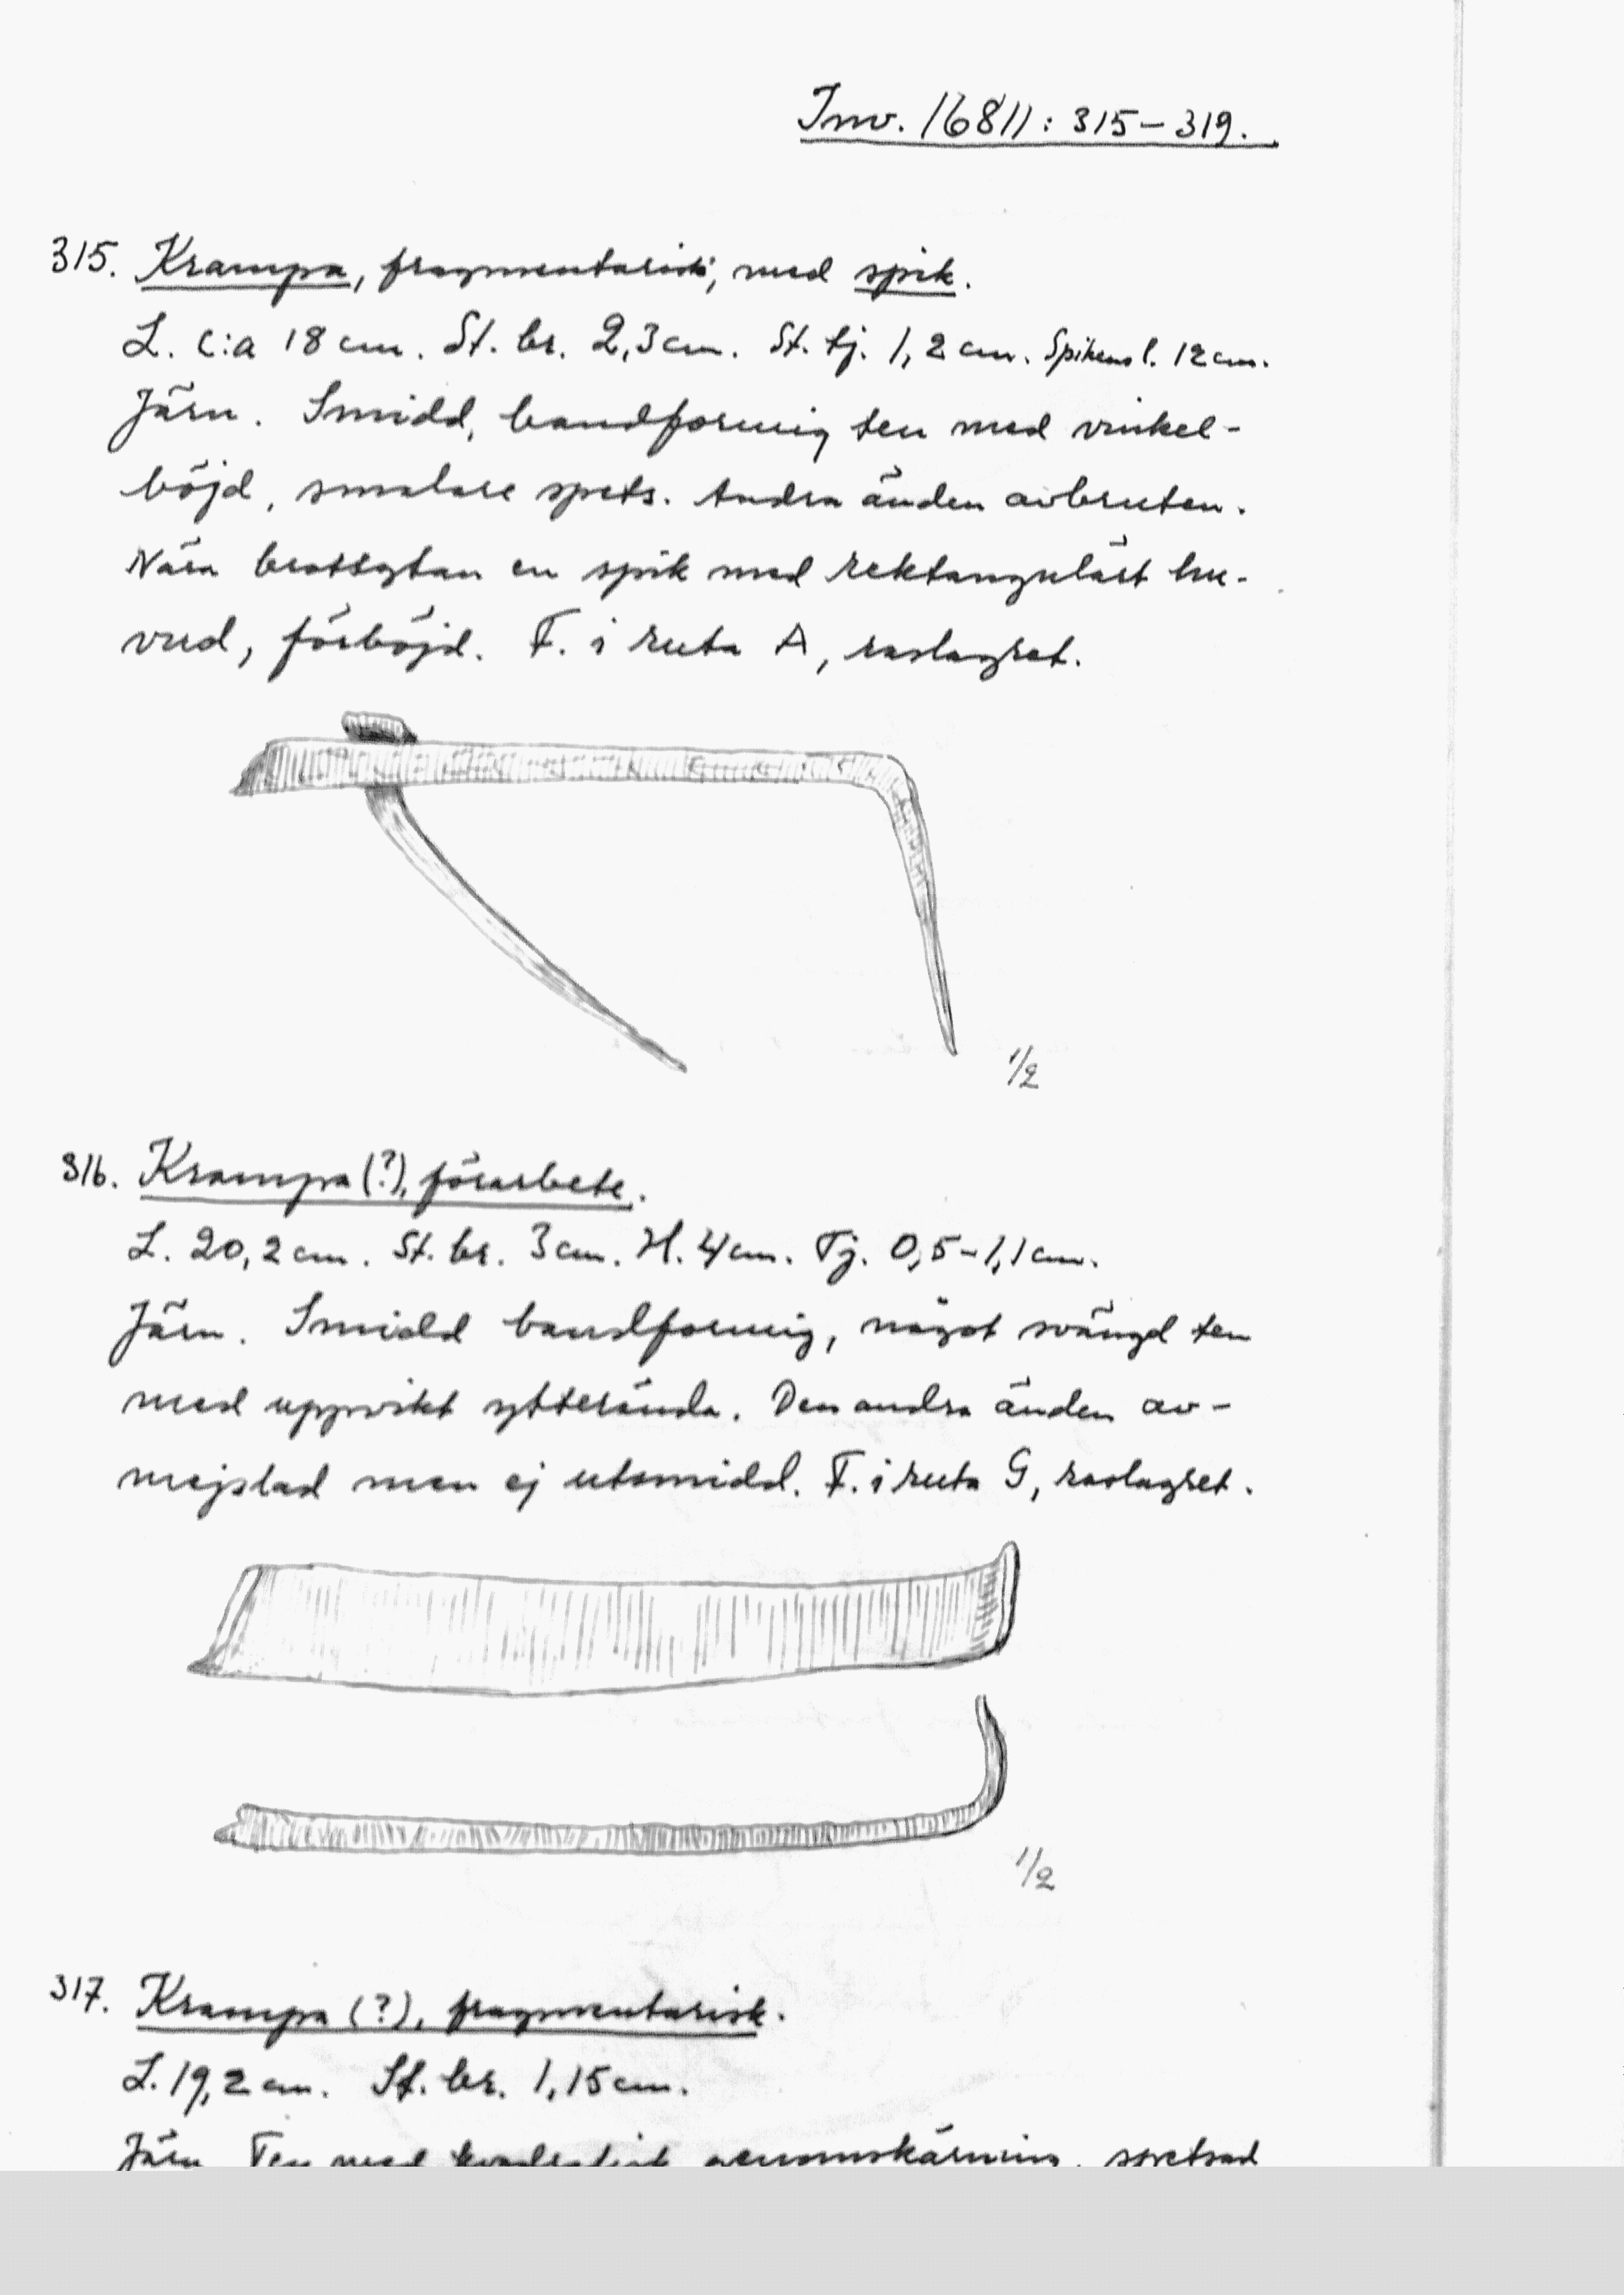 Inv. 16811: 315–319.
315. Krampa, fragmentarisk, med spik.
L. c:a 18 cm. St. br. 2,3 cm. St. tj. 1,2 cm. Spikens l. 12 cm.
Järn. Smidd, bandformig ten med vinkel-
böjd, smalare spets. Andra änden avbruten.
Nära brottytan en spik med rektangulärt hu-
vud, förböjd. F. i ruta A, raslagret.
1/2
316. Krampa (?), förarbete.
L. 20,2 cm. St. br. 3 cm. H. 4 cm. Tj. 0,5–1,1 cm.
Järn. Smidd bandformig, något svängd ten
med uppvikt ytterända. Den andra änden av-
mejslad men ej utsmidd. F. i ruta G, raslagret.
1/2
317. Krampa (?), fragmentarisk.
L. 19,2 cm. St. br. 1,15 cm.
Järn. Ten med kvadratisk genomskärning, spetsad